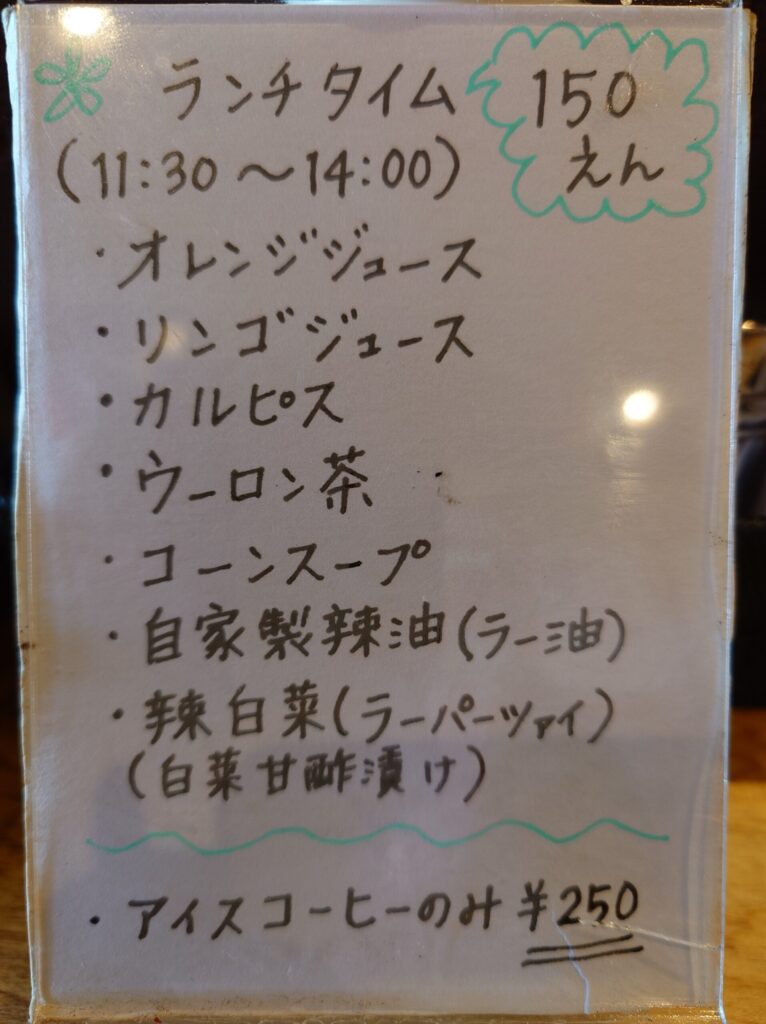 ランチタイム 150
えん
(11:30 〜 14:00)
・オレンジジュース
・リンゴジュース
・カルピス
・ウーロン茶
・コーンスープ
・自家製辣油(ラー油)
・辣白菜(ラーパーツァイ)
(白菜甘酢漬け)
・アイスコーヒーのみ ¥250